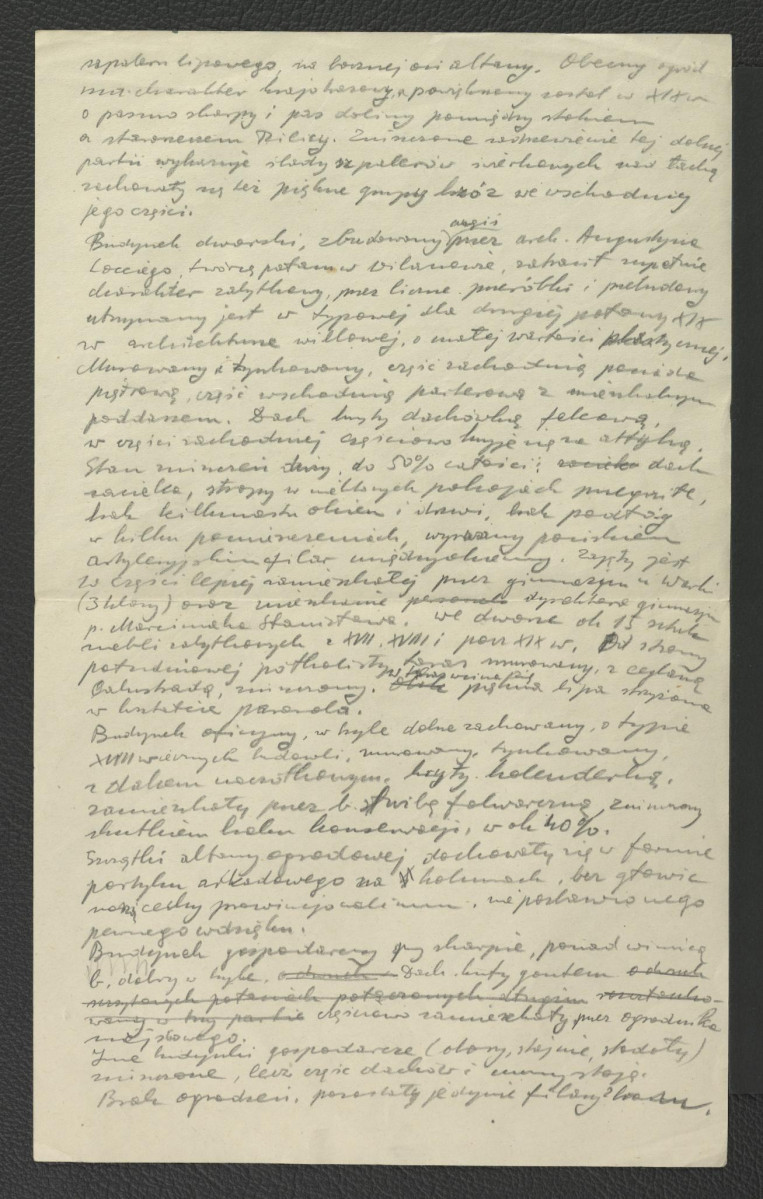 szpaleru lipowego, na bocznej osi altany. Obecny ogród
ma charakter krajobrazowy, powiększony został w XIX w
o pasmo skarpy i pas doliny pomiędzy stokiem
a starorzeczem Pilicy. Zniszczone zadrzewienie tej dolnej
partii wykazuje ślady szpalerów świerkowych nad łachą
zachowały się też piękne grupy brzóz we wschodniej
jego części.
Budynek dworski, zbudowany angiś przez arch. Augustyna
Locciego, twórcę pałacu w Wilanowie, zatracił zupełnie
charakter zabytkowy, przez liczne przeróbki i przebudowy
utrzymany jest w typowej dla drugiej połowy XIX
w architekturze willowej, o małej wartości plastycznej.
Murowany i tynkowany, część zachodnią posiada
piętrową, część wschodnią parterową z mieszkalnym
poddaszem. Dach kryty dachówką felcową,
w części zachodniej częściowo kryje się za attyką.
Stan zniszczeń duży, do 50% całości; dach
zacieka, stropy w niektórych pokojach przegniłe,
brak kilkunastu okien i drzwi, brak podłóg
w kilku pomieszczeniach, wyrwany pociskiem
artyleryjskim filar międzyokienny. Zajęty jest
w części lepiej zamieszkałej przez gimnazjum w Warki
(3 klasy) oraz mieszkanie personelu dyrektora gimnazjum
p. Marciniaka Stanisława. We dworze ok 15 sztuk
mebli zabytkowych z XVII, XVIII i pocz XIX w. Od strony
południowej półkolisty taras murowany, z ceglaną
balustradą, zniszczony. Obok piękna lipa strzyżona
w kształcie parasola.
Budynek oficyny, w tyle dolne zachowany, o typie
XVIII wiecznych budowli, murowany, tynkowany,
z dachem naczółkowym, kryty holenderką,
zamieszkały przez b. służbę folwarczną, zniszczony
skutkiem braku konserwacji, w ok 40%.
Szczątki altany ogrodowej dochowały się w formie
portyku arkadowego na kolumnach, bez głowic
noszą cechy prowincjonalizmu, nie pozbawionego
pewnego wdzięku.
Budynek gospodarczy przy skarpie, ponad winnicą
b. dobry w tyle. Dach kryty gontem o dwuch
częściowo zamieszkały przez ogrodnika
miejscowego.
Inne budynki gospodarcze (obory, stajnie, stodoły)
zniszczone, lecz część dachów i mury stoją.
Brak ogrodzeń, pozostały jedynie filary bram.